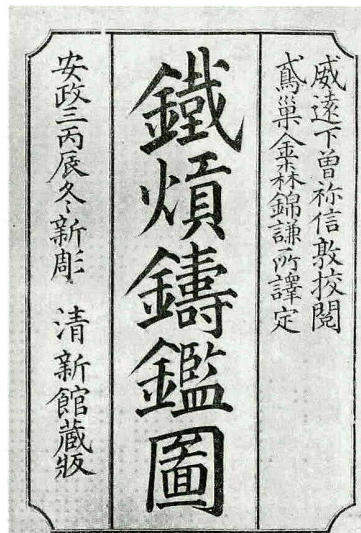 威遠下曽祢信敦挍閲
鳶巢金森錦謙所譯定
鐵熕鑄鑑圖
安政三丙辰冬新彫 清新館藏版